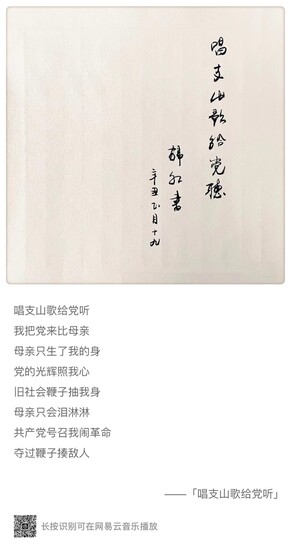 唱支山歌给党聽
韩红書
辛丑正月十九
唱支山歌给党听
我把党来比母亲
母亲只生了我的身
党的光辉照我心
旧社会鞭子抽我身
母亲只会泪淋淋
共产党号召我闹革命
夺过鞭子揍敌人
——「唱支山歌给党听」
长按识别可在网易云音乐播放